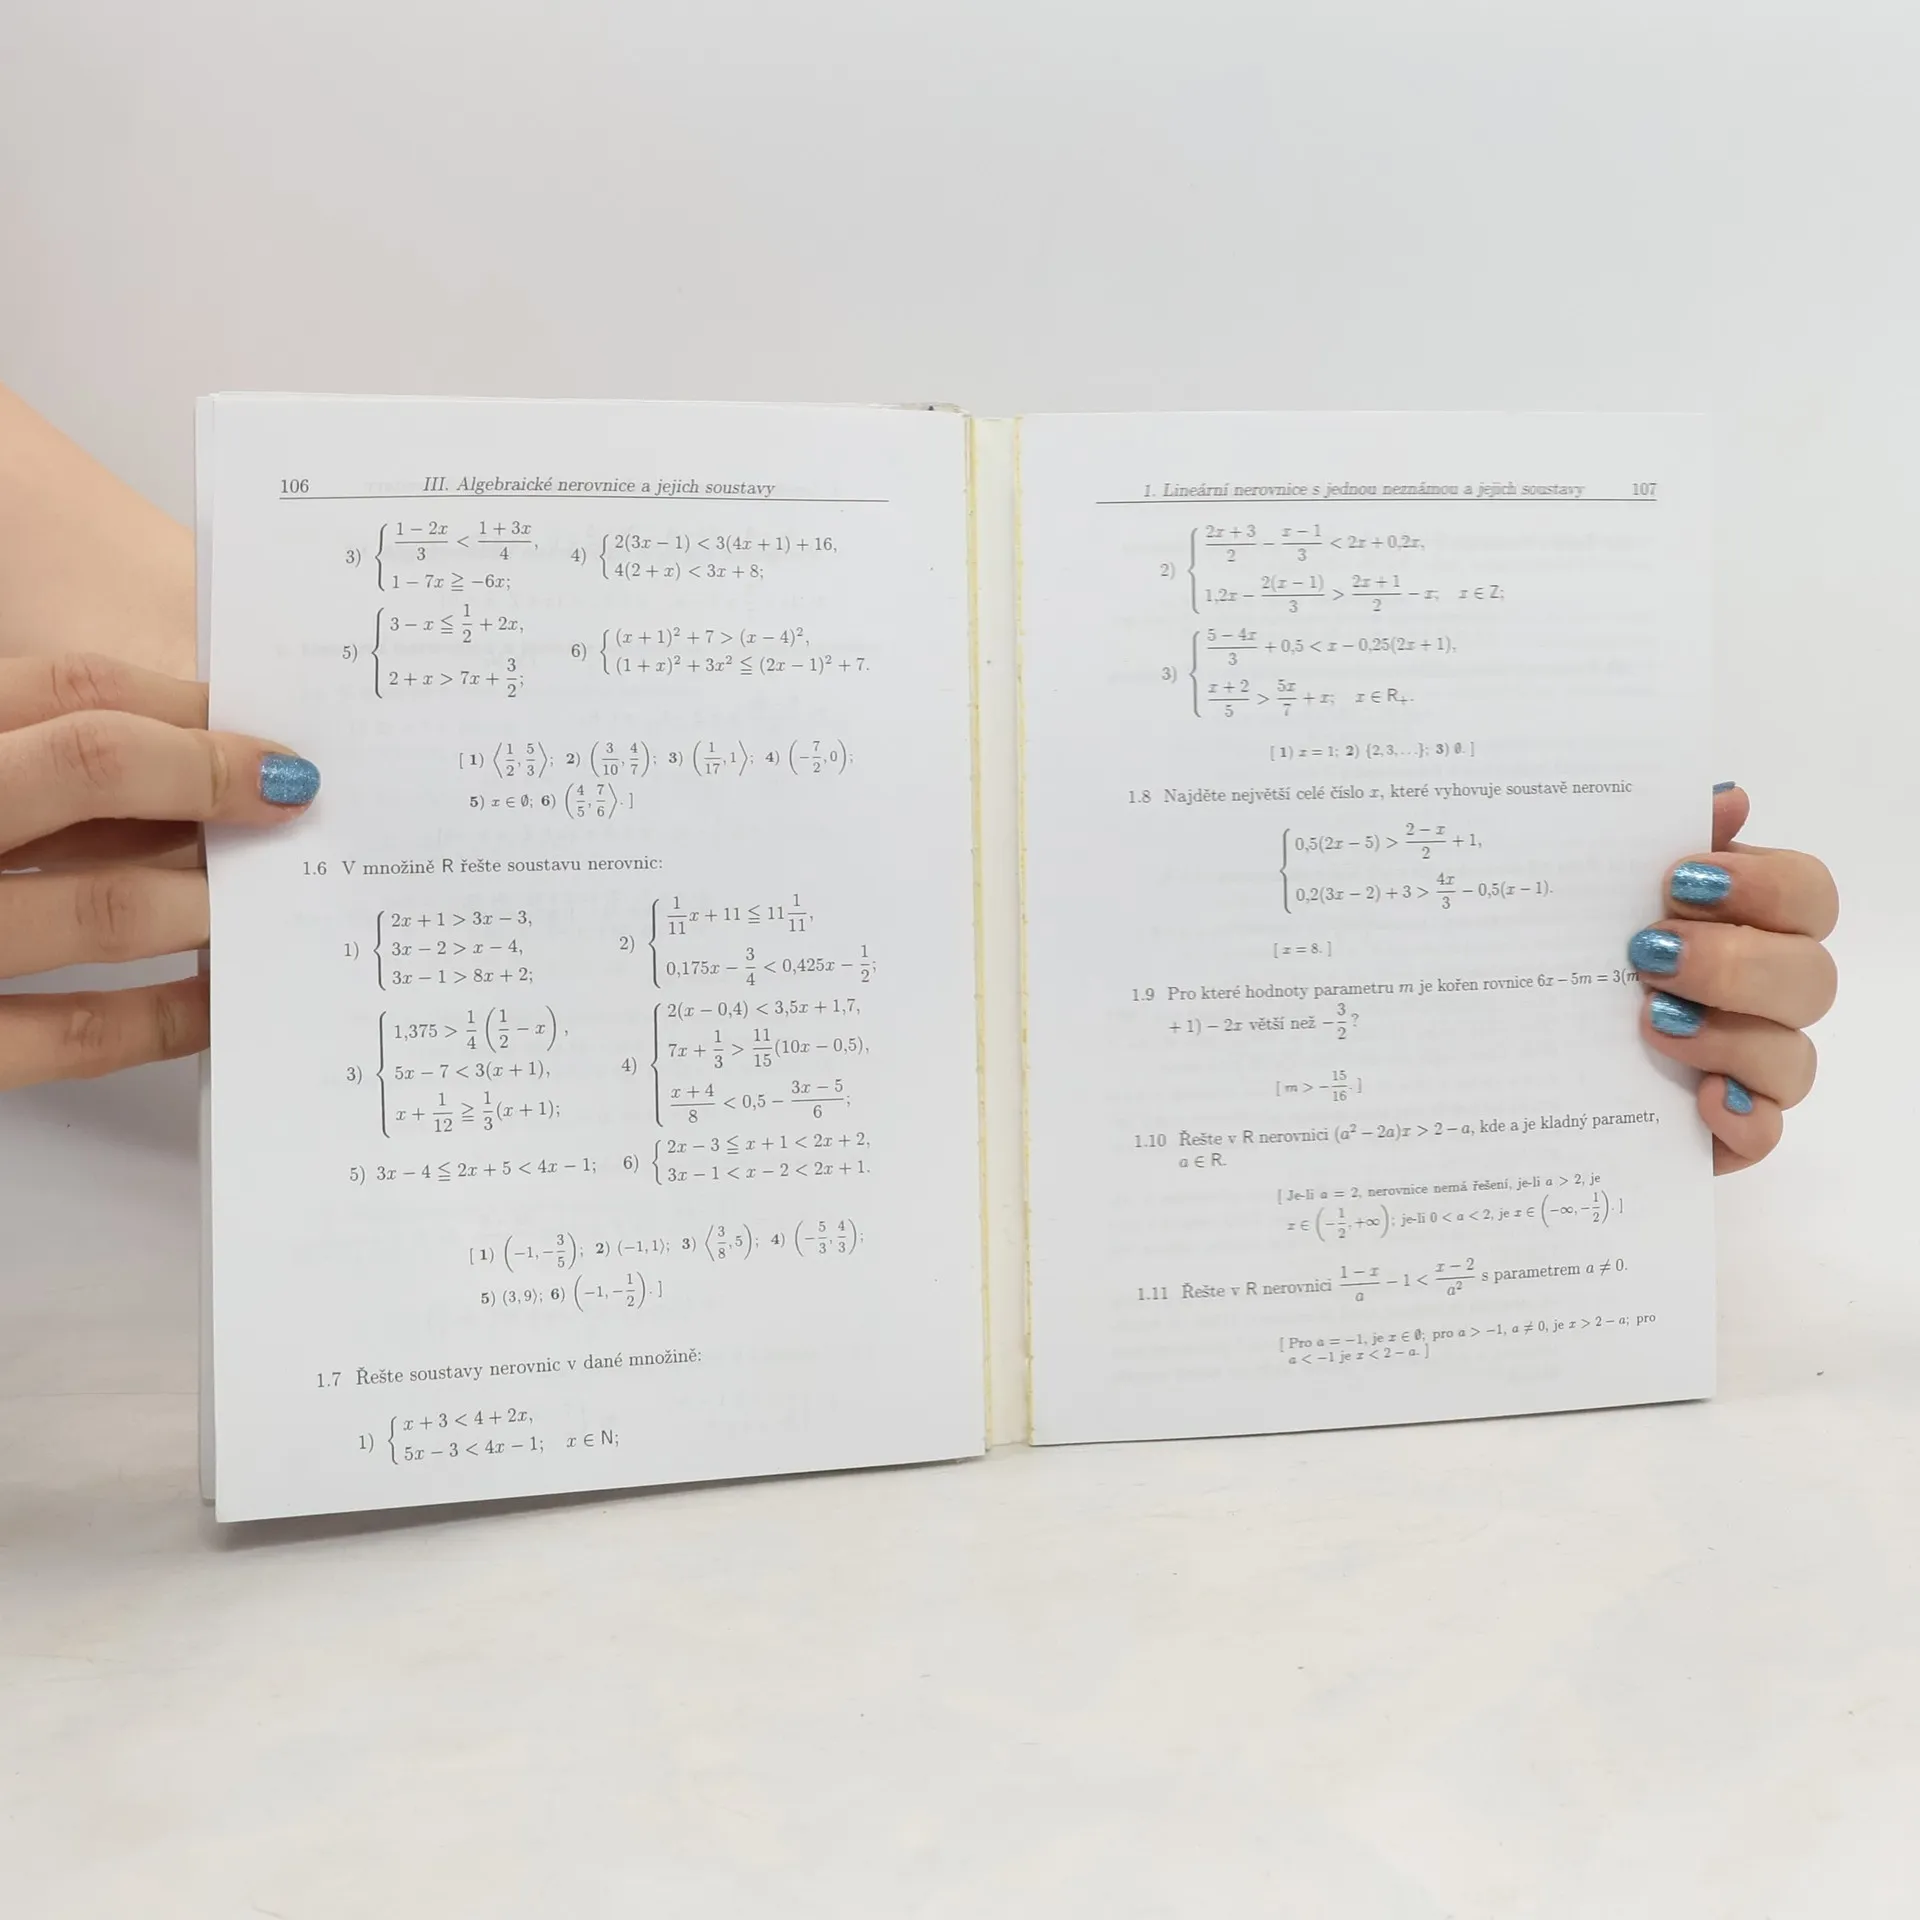 106 III. Algebraické nerovnice a jejich soustavy
3) { (1 − 2x)/3 < (1 + 3x)/4,
1 − 7x ≧ −6x;
4) { 2(3x − 1) < 3(4x + 1) + 16,
4(2 + x) < 3x + 8;
5) { 3 − x ≦ 1/2 + 2x,
2 + x > 7x + 3/2;
6) { (x + 1)² + 7 > (x − 4)²,
(1 + x)² + 3x² ≦ (2x − 1)² + 7.
[ 1) ⟨1/2, 5/3⟩; 2) (3/10, 4/7); 3) (1/17, 1⟩; 4) (−7/2, 0);
5) x ∈ ∅; 6) (4/5, 7/6⟩. ]
1.6 V množině R řešte soustavu nerovnic:
1) { 2x + 1 > 3x − 3,
3x − 2 > x − 4,
3x − 1 > 8x + 2;
2) { 1/11 x + 11 ≦ 11 1/11,
0,175x − 3/4 < 0,425x − 1/2;
3) { 1,375 > 1/4 (1/2 − x),
5x − 7 < 3(x + 1),
x + 1/12 ≧ 1/3 (x + 1);
4) { 2(x − 0,4) < 3,5x + 1,7,
7x + 1/3 > 11/15 (10x − 0,5),
(x + 4)/8 < 0,5 − (3x − 5)/6;
5) 3x − 4 ≦ 2x + 5 < 4x − 1;
6) { 2x − 3 ≦ x + 1 < 2x + 2,
3x − 1 < x − 2 < 2x + 1.
[ 1) (−1, −3/5); 2) (−1, 1⟩; 3) ⟨3/8, 5); 4) (−5/3, 4/3);
5) (3, 9⟩; 6) (−1, −1/2). ]
1.7 Řešte soustavy nerovnic v dané množině:
1) { x + 3 < 4 + 2x,
5x − 3 < 4x − 1; x ∈ N;
1. Lineární nerovnice s jednou neznámou a jejich soustavy 107
2) { (2x + 3)/2 − (x − 1)/3 < 2x + 0,2x,
1,2x − 2(x − 1)/3 > (2x + 1)/2 − x; x ∈ Z;
3) { (5 − 4x)/3 + 0,5 < x − 0,25(2x + 1),
(x + 2)/5 > 5x/7 + x; x ∈ R₊.
[ 1) x = 1; 2) {2, 3, …}; 3) ∅. ]
1.8 Najděte největší celé číslo x, které vyhovuje soustavě nerovnic
{ 0,5(2x − 5) > (2 − x)/2 + 1,
0,2(3x − 2) + 3 > 4x/3 − 0,5(x − 1).
[ x = 8. ]
1.9 Pro které hodnoty parametru m je kořen rovnice 6x − 5m = 3(m
+ 1) − 2x větší než −3/2?
[ m > −15/16. ]
1.10 Řešte v R nerovnici (a² − 2a)x > 2 − a, kde a je kladný parametr,
a ∈ R.
[ Je-li a = 2, nerovnice nemá řešení, je-li a > 2, je
x ∈ (−1/2, +∞); je-li 0 < a < 2, je x ∈ (−∞, −1/2). ]
1.11 Řešte v R nerovnici (1 − x)/a − 1 < (x − 2)/a² s parametrem a ≠ 0.
[ Pro a = −1, je x ∈ ∅; pro a > −1, a ≠ 0, je x > 2 − a; pro
a < −1 je x < 2 − a. ]